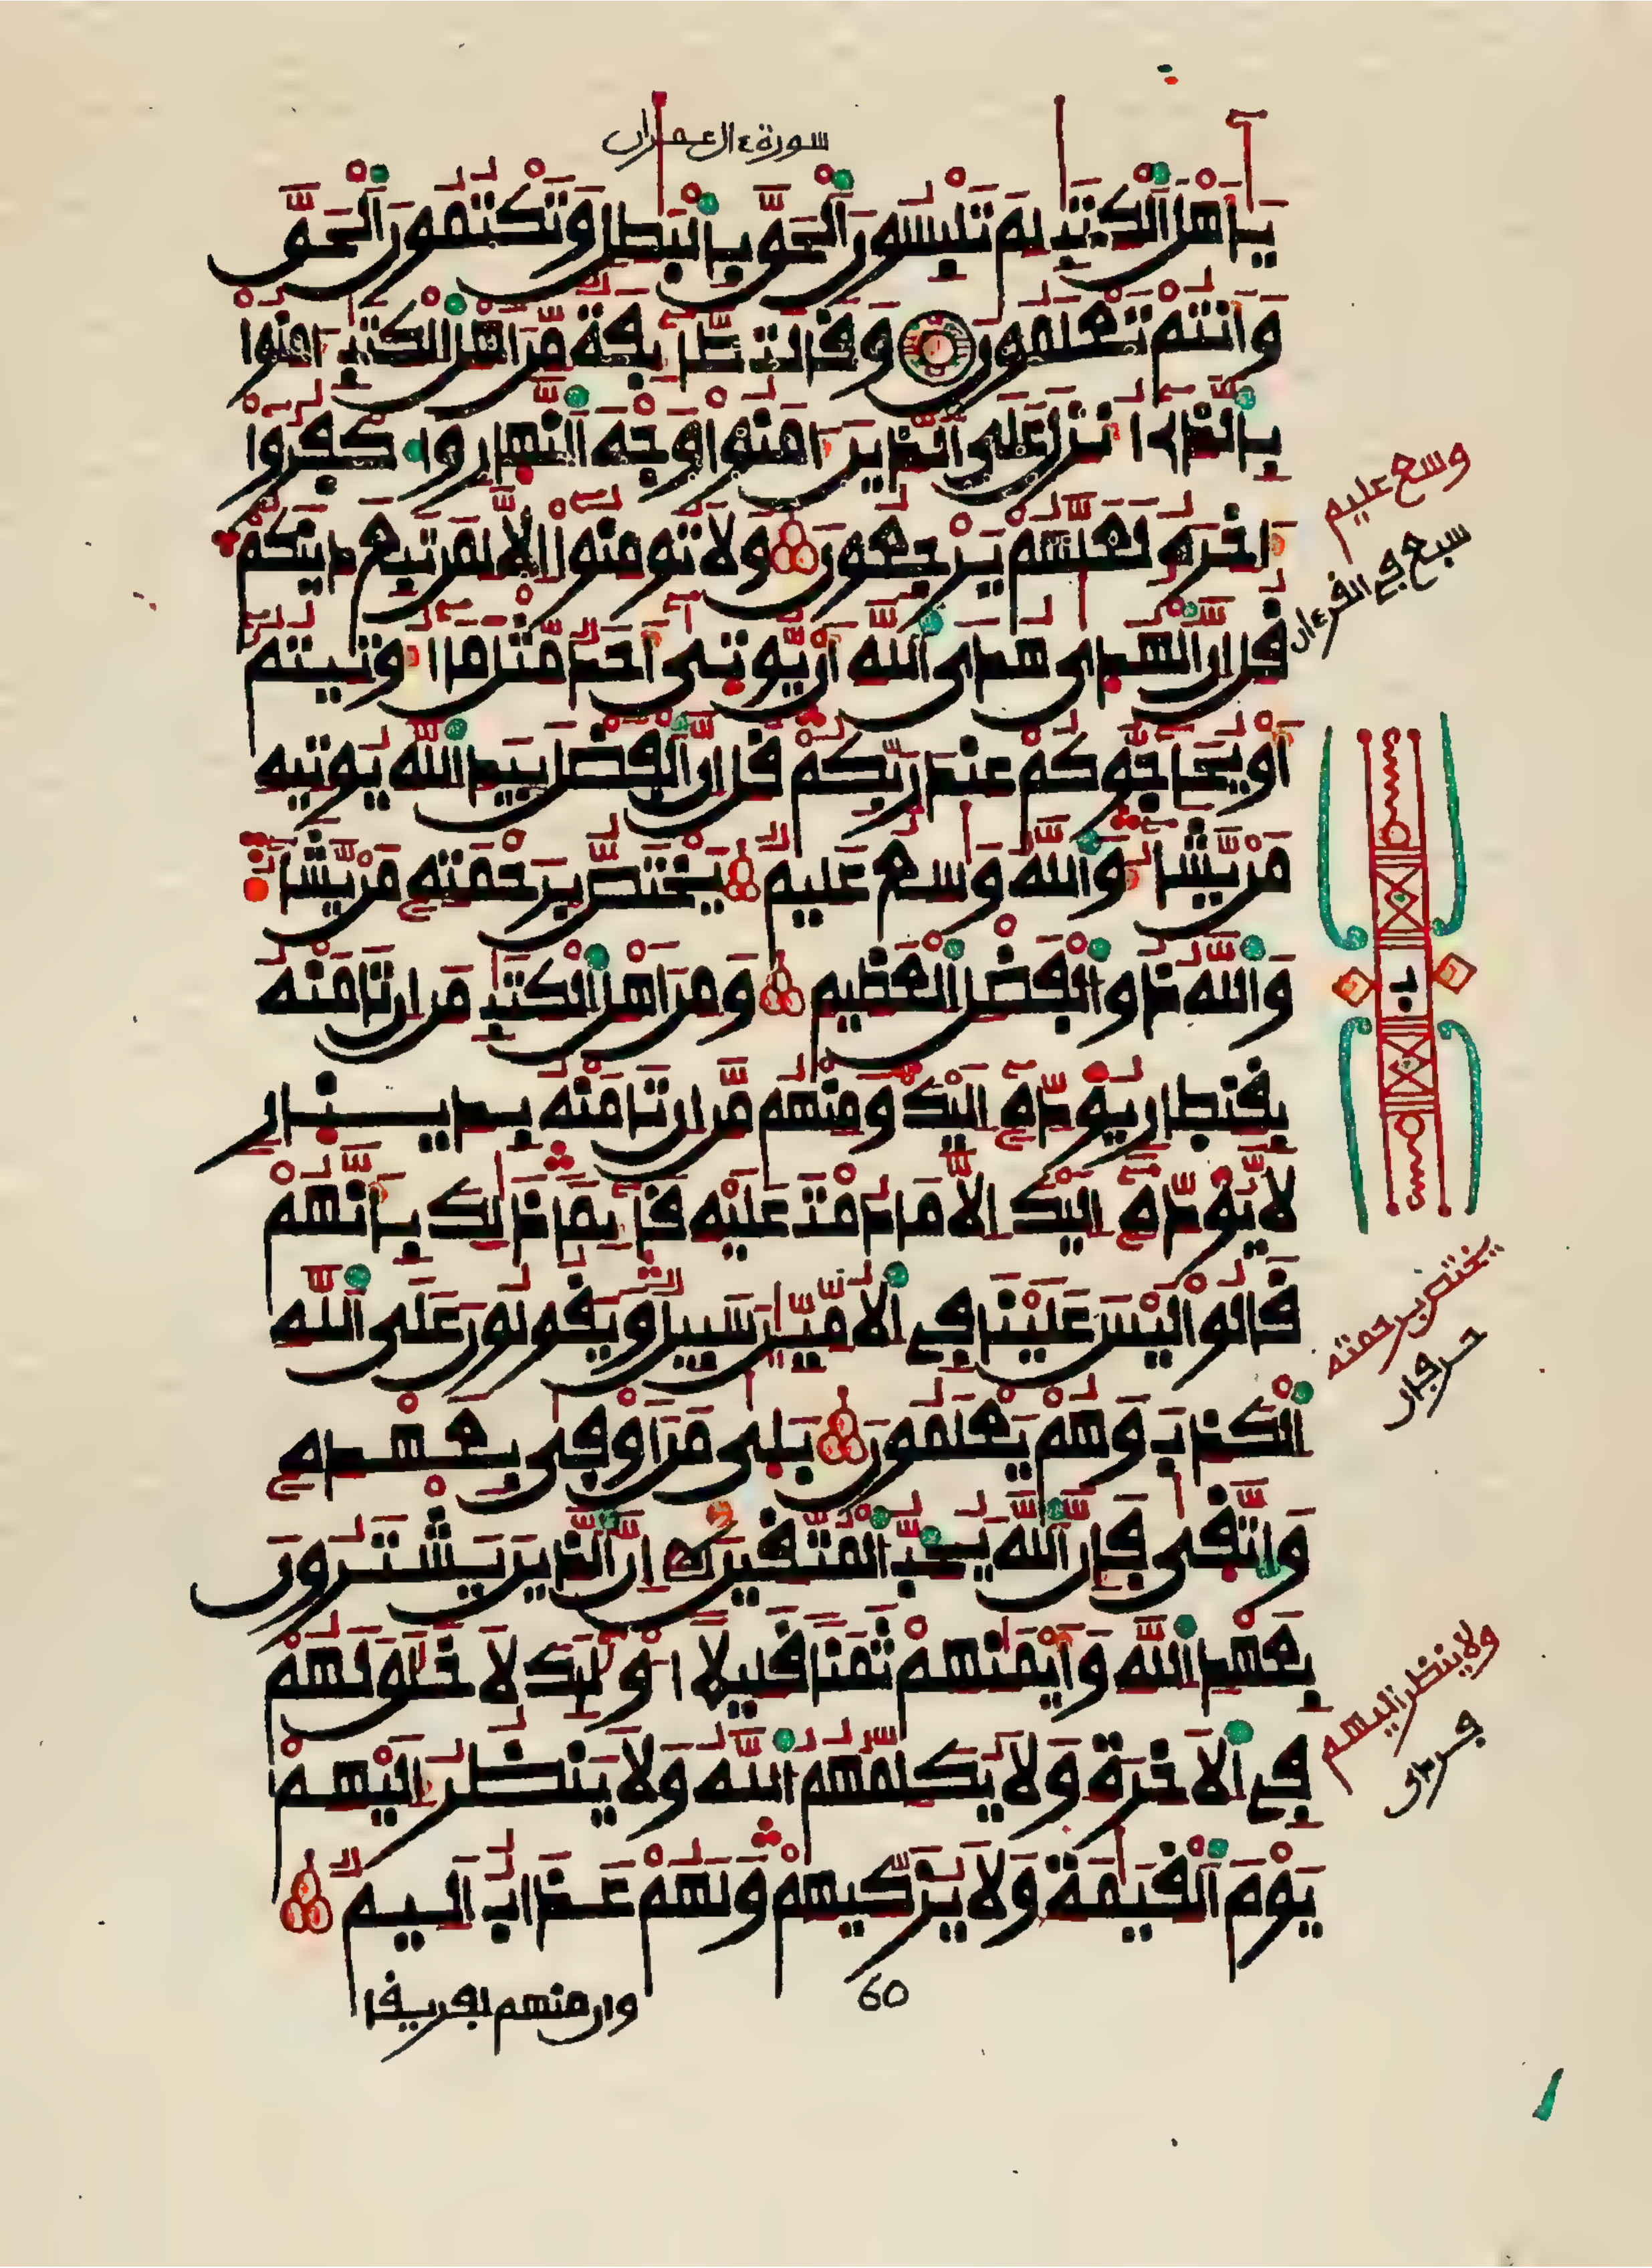 سورة ءال عمران
يَٰأَهْلَ اَلْكِتَٰبِ لِمَ تَلْبِسُونَ اَلْحَقَّ بِالْبَٰطِلِ وَتَكْتُمُونَ اَلْحَقَّ
وَأَنتُمْ تَعْلَمُونَ وَقَالَت طَّآئِفَةٌ مِّنَ اَهْلِ اِلْكِتَٰبِ ءَامِنُواْ
بِالذِےٓ أُنزِلَ عَلَى اَلذِينَ ءَامَنُواْ وَجْهَ اَلنَّهارِ وَاكْفُرُوٓاْ
ءَاخِرَهُۥ لَعَلَّهُمْ يَرْجِعُونَ وَلَا تُومِنُوٓاْ إِلَّا لِمَن تَبِعَ دِينَكُمْ
قُلِ اِنَّ اَلْهُدَىٰ هُدَى اَللَّهِ أَنْ يُّوتَىٰٓ أَحَدٌ مِّثْلَ مَآ أُوتِيتُمُۥٓ
أَوْ يُحَآجُّوكُمْ عِندَ رَبِّكُمْ قُلِ اِنَّ اَلْفَضْلَ بِيَدِ اِللَّهِ يُوتِيهِ
مَنْ يَّشَآءُ وَاللَّهُ وَٰسِعٌ عَلِيمٌ يَخْتَصُّ بِرَحْمَتِهِۦ مَنْ يَّشَآءُ
وَاللَّهُ ذُو اَلْفَضْلِ اِلْعَظِيمِ وَمِنَ اَهْلِ اِلْكِتَٰبِ مَنِ اِن تَامَنْهُ
بِقِنطارٍ يُؤَدِّهِۦٓ إِلَيْكَ وَمِنْهُم مَّنِ اِن تَامَنْهُ بِدِينارٍ
لَّا يُؤَدِّهِۦٓ إِلَيْكَ إِلَّا مَا دُمْتَ عَلَيْهِ قَآئِماً ذَٰلِكَ بِأَنَّهُمْ
قَالُواْ لَيْسَ عَلَيْنَا فِے اِلُامِّيِّـۧنَ سَبِيلٌ وَيَقُولُونَ عَلَى اَللَّهِ
اِلْكَذِبَ وَهُمْ يَعْلَمُونَ بَلَىٰ مَنَ اَوْفَىٰ بِعَهْدِهِۦ
وَاتَّقَىٰ فَإِنَّ اَللَّهَ يُحِبُّ اُلْمُتَّقِينَ إِنَّ اَلذِينَ يَشْتَرُونَ
بِعَهْدِ اِللَّهِ وَأَيْمَٰنِهِمْ ثَمَناً قَلِيلاً أُوْلَٰٓئِكَ لَا خَلَٰقَ لَهُمْ
فِے اِلَاخِرَةِ وَلَا يُكَلِّمُهُمُ اُللَّهُ وَلَا يَنظُرُ إِلَيْهِمْ
يَوْمَ اَلْقِيَٰمَةِ وَلَا يُزَكِّيهِمْ وَلَهُمْ عَذَابٌ اَلِيمٌ
وإن منهم لفريقا
60
وسع عليم
سبع في القرءان
يختص برحمته
حرفان
ولا ينظر إليهم